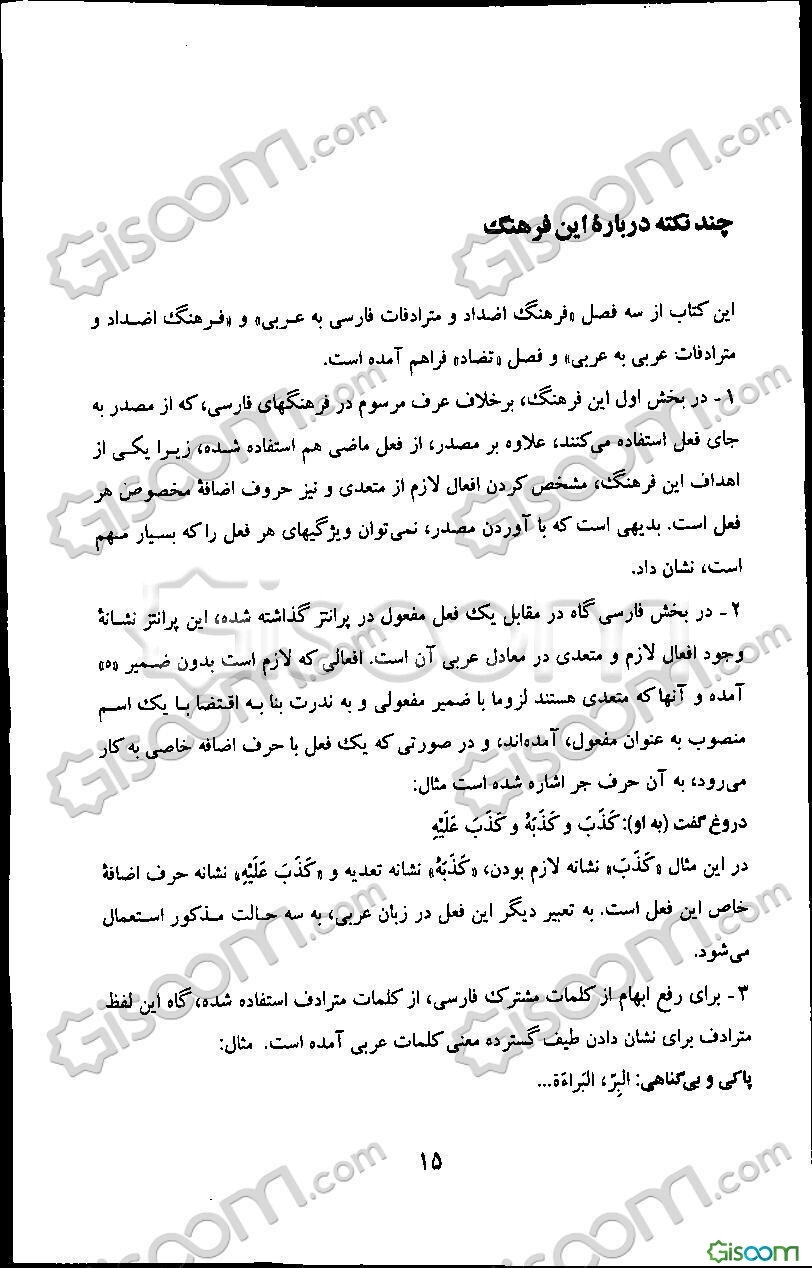 چند نکته دربارهٔ این فرهنگ
این کتاب از سه فصل «فرهنگ اضداد و مترادفات فارسی به عربی» و «فرهنگ اضداد و
مترادفات عربی به عربی» و فصل «تضاد» فراهم آمده است.
۱- در بخش اول این فرهنگ، برخلاف عرف مرسوم در فرهنگهای فارسی، که از مصدر به
جای فعل استفاده می‌کنند، علاوه بر مصدر، از فعل ماضی هم استفاده شده، زیرا یکی از
اهداف این فرهنگ، مشخص کردن افعال لازم از متعدی و نیز حروف اضافهٔ مخصوص هر
فعل است. بدیهی است که با آوردن مصدر، نمی‌توان ویژگیهای هر فعل را که بسیار مهم
است، نشان داد.
۲- در بخش فارسی گاه در مقابل یک فعل مفعول در پرانتز گذاشته شده، این پرانتز نشانهٔ
وجود افعال لازم و متعدی در معادل عربی آن است. افعالی که لازم است بدون ضمیر «ه»
آمده و آنها که متعدی هستند لزوما با ضمیر مفعولی و به ندرت بنا به اقتضا با یک اسم
منصوب به عنوان مفعول، آمده‌اند، و در صورتی که یک فعل با حرف اضافه خاصی به کار
می‌رود، به آن حرف جر اشاره شده است مثال:
دروغ گفت (به او): کَذَبَ و کَذَبَهُ و کَذَبَ عَلَیْهِ
در این مثال «کَذَبَ» نشانه لازم بودن، «کَذَبَهُ» نشانه تعدیه و «کَذَبَ عَلَیْهِ» نشانه حرف اضافهٔ
خاص این فعل است. به تعبیر دیگر این فعل در زبان عربی، به سه حالت مذکور استعمال
می‌شود.
۳- برای رفع ابهام از کلمات مشترک فارسی، از کلمات مترادف استفاده شده، گاه این لفظ
مترادف برای نشان دادن طیف گسترده معنی کلمات عربی آمده است. مثال:
پاکی و بی‌گناهی: البِرّ، البَراءَة...
۱۵
Gisoom.com
Gisoom